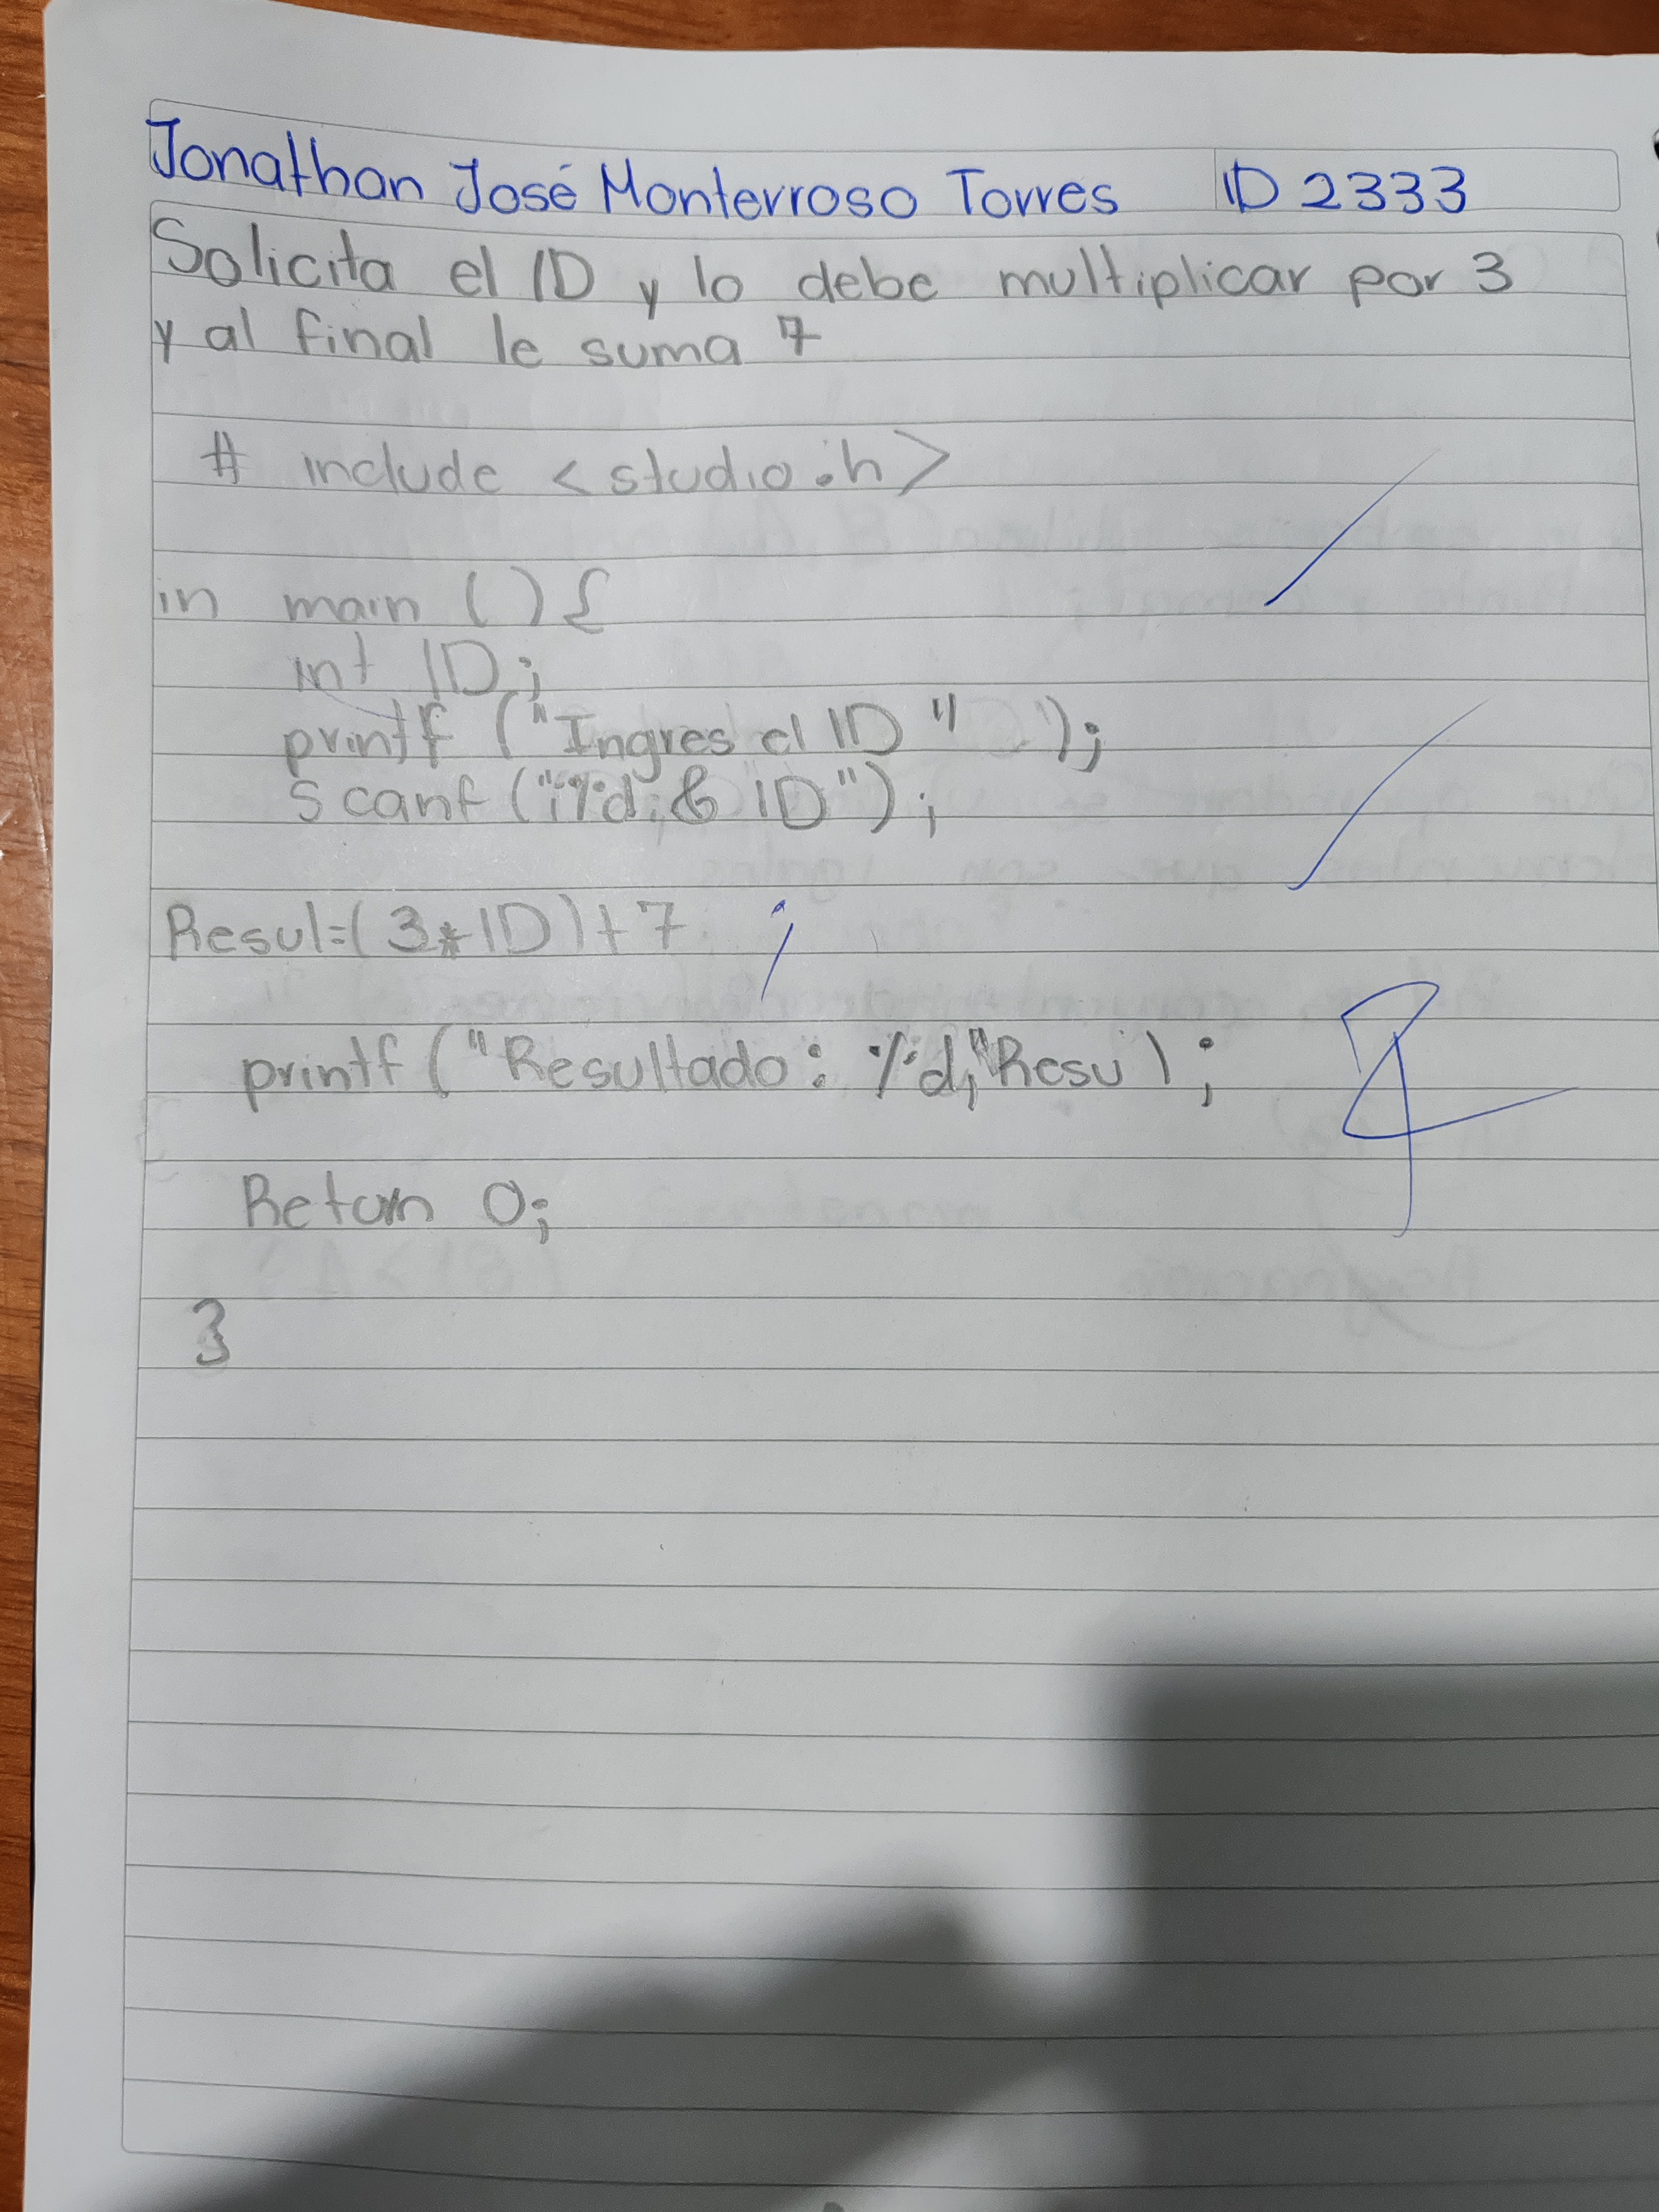 Jonathan José Monterroso Torres ID 2333
Solicita el ID y lo debe multiplicar por 3
y al final le suma 7
# include <studio.h>
in main () {
int ID;
printf ("Ingres el ID ");
scanf ("%d,& ID");
Resul=(3*ID)+7 ;
printf ("Resultado: %d,"Resu);
Return 0;
}